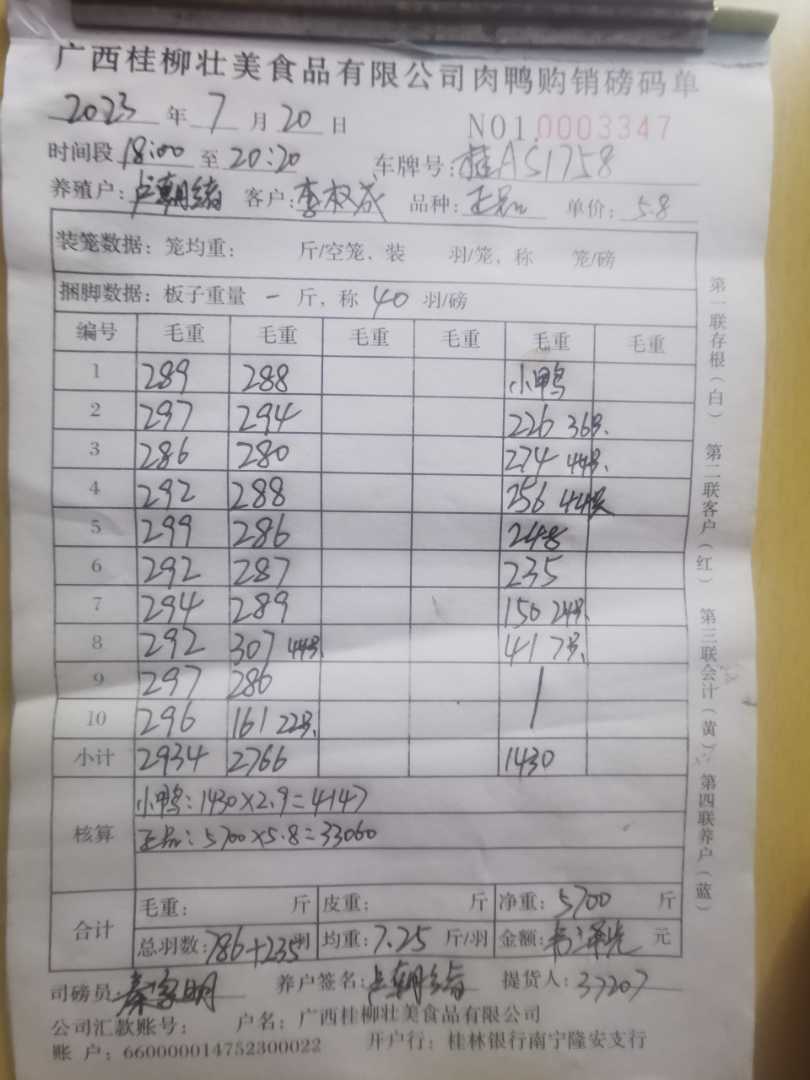 广西桂柳壮美食品有限公司肉鸭购销磅码单
2023 年 7 月 20 日 NO1.0003347
时间段 18:00 至 20:20 车牌号: 桂AS1758
养殖户: 客户: 李权成 品种: 正品 单价: 5.8
装笼数据: 笼均重: 斤/空笼、装 羽/笼, 称 笼/磅
捆脚数据: 板子重量 一 斤, 称 40 羽/磅
编号 毛重 毛重 毛重 毛重 毛重 毛重
1 289 288 小鸭
2 297 294 226 36只.
3 286 280 274 44只.
4 292 288 256 44只
5 299 286 248
6 292 287 235
7 294 289 150 24只.
8 292 307 44只. 41 7只.
9 297 286
10 296 161 22只.
小计 2934 2766 1430
核算 小鸭: 1430×2.9=4147
正品: 5700×5.8=33060
合计 毛重: 斤 皮重: 斤 净重: 5700 斤
总羽数: 786+235羽 均重: 7.25 斤/羽 金额: 元
司磅员: 养户签名: 提货人: 37207
公司汇款账号: 户名: 广西桂柳壮美食品有限公司
账 户: 660000014752300022 开户行: 桂林银行南宁隆安支行
第一联存根(白) 第二联客户(红) 第三联会计(黄) 第四联养户(蓝)